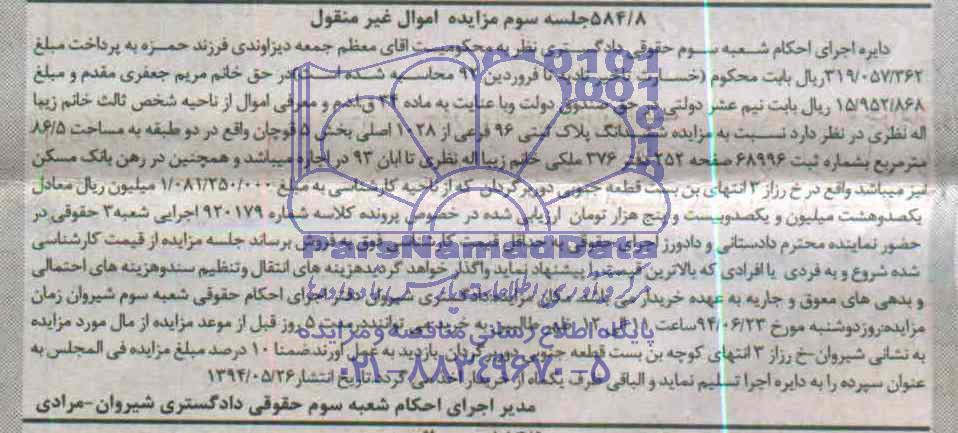 ۵۸۴/۸جلسه سوم مزایده اموال غیر منقول
دایره اجرای احکام شعبه سوم حقوقی دادگستری نظر به محکومیت اقای معظم جمعه دیزاوندی فرزند حمزه به پرداخت مبلغ
۳۱۹/۰۵۷/۳۶۲ریال بابت محکوم (خسارت تاخیر تادیه تا فروردین ۹۲ محاسبه شده است)در حق خانم مریم جعفری مقدم و مبلغ
۱۵/۹۵۲/۸۶۸ ریال بابت نیم عشر دولتی در حق صندوق دولت وبا عنایت به ماده ۳۴ ق.ا.م و معرفی اموال از ناحیه شخص ثالث خانم زیبا
اله نظری در نظر دارد نسبت به مزایده ششدانگ پلاک ثبتی ۹۶ فرعی از ۱۰۲۸ اصلی بخش ۵ قوچان واقع در دو طبقه به مساحت ۸۶/۵
مترمربع بشماره ثبت ۶۸۹۹۶ صفحه ۲۵۲ دفتر ۳۷۶ ملکی خانم زیبا اله نظری تا ابان ۹۳ در اجاره میباشد و همچنین در رهن بانک مسکن
نیز میباشد واقع در خ رزاز ۳ انتهای بن بست قطعه جنوبی دوربرگردان که از ناحیه کارشناسی به مبلغ ۱/۰۸۱/۲۵۰/۰۰۰ میلیون ریال معادل
یکصدوهشت میلیون و یکصدوبیست و پنج هزار تومان ارزیابی شده در خصوص پرونده کلاسه شماره ۹۲۰۱۷۹ اجرایی شعبه۳ حقوقی در
حضور نماینده محترم دادستانی و دادورز اجرای حقوقی به حداقل قیمت کارشناسی فوق به فروش برساند جلسه مزایده از قیمت کارشناسی
شده شروع و به فردی یا افرادی که بالاترین قیمت را پیشنهاد نماید واگذار خواهد گردیدهزینه های انتقال وتنظیم سندوهزینه های احتمالی
و بدهی های معوق و جاریه به عهده خریدار می باشد مکان مزایده:دادگستری شیروان دفتر اجرای احکام حقوقی شعبه سوم شیروان زمان
مزایده:روزدوشنبه مورخ ۹۴/۰۶/۲۳ساعت ۱۱ الی ۱۲ ظهر طالبین به خرید می توانند مدت ۵ روز قبل از موعد مزایده از مال مورد مزایده
به نشانی شیروان-خ رزاز ۳ انتهای کوچه بن بست قطعه جنوبی دوربرگردان بازدید به عمل آورند ضمنا ۱۰ درصد مبلغ مزایده فی المجلس به
عنوان سپرده را به دایره اجرا تسلیم نماید و الباقی ظرف یکماه از خریدار اخذ می گردد.تاریخ انتشار ۱۳۹۴/۰۵/۲۶
مدیر اجرای احکام شعبه سوم حقوقی دادگستری شیروان-مرادی
ParsNamadData
پایگاه اطلاع رسانی مناقصه و مزایده
۰۲۱-۸۸۳۴۹۶۷۰-۵